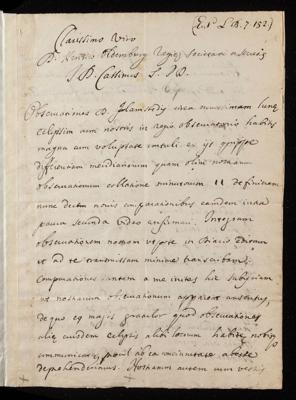 (E.t L.B. 7. 152)
Clarissimo Viro
D. Henrico Oldemburg Regiae Societati a Secretis
J D. Cassinus S. P. D.
Observationes D. Flamstedij circa nuperrimam lunae
eclypsim cum nostris in regio observatorio habitis
magna cum voluptate contuli ex ijs quippe
differentiam meridianorum quam olim
observationum collatione minutorum 11 definieram
nunc decem novis comparationibus eandem intra
pauca secunda video confirmari. Integram
observationem nostram
ut ad te transmissam minime transcribam.
Computationes autem a me initas hic subijciam
ut nostrarum observationum appareat consensus,
de quo eo magis gratulor quod observationes
eiusdem eclipsis alibi locorum habitae nobis
communicatae, procul ab ea concinnitate abesse
deprehenderimus. Nostrarum autem cum vestris